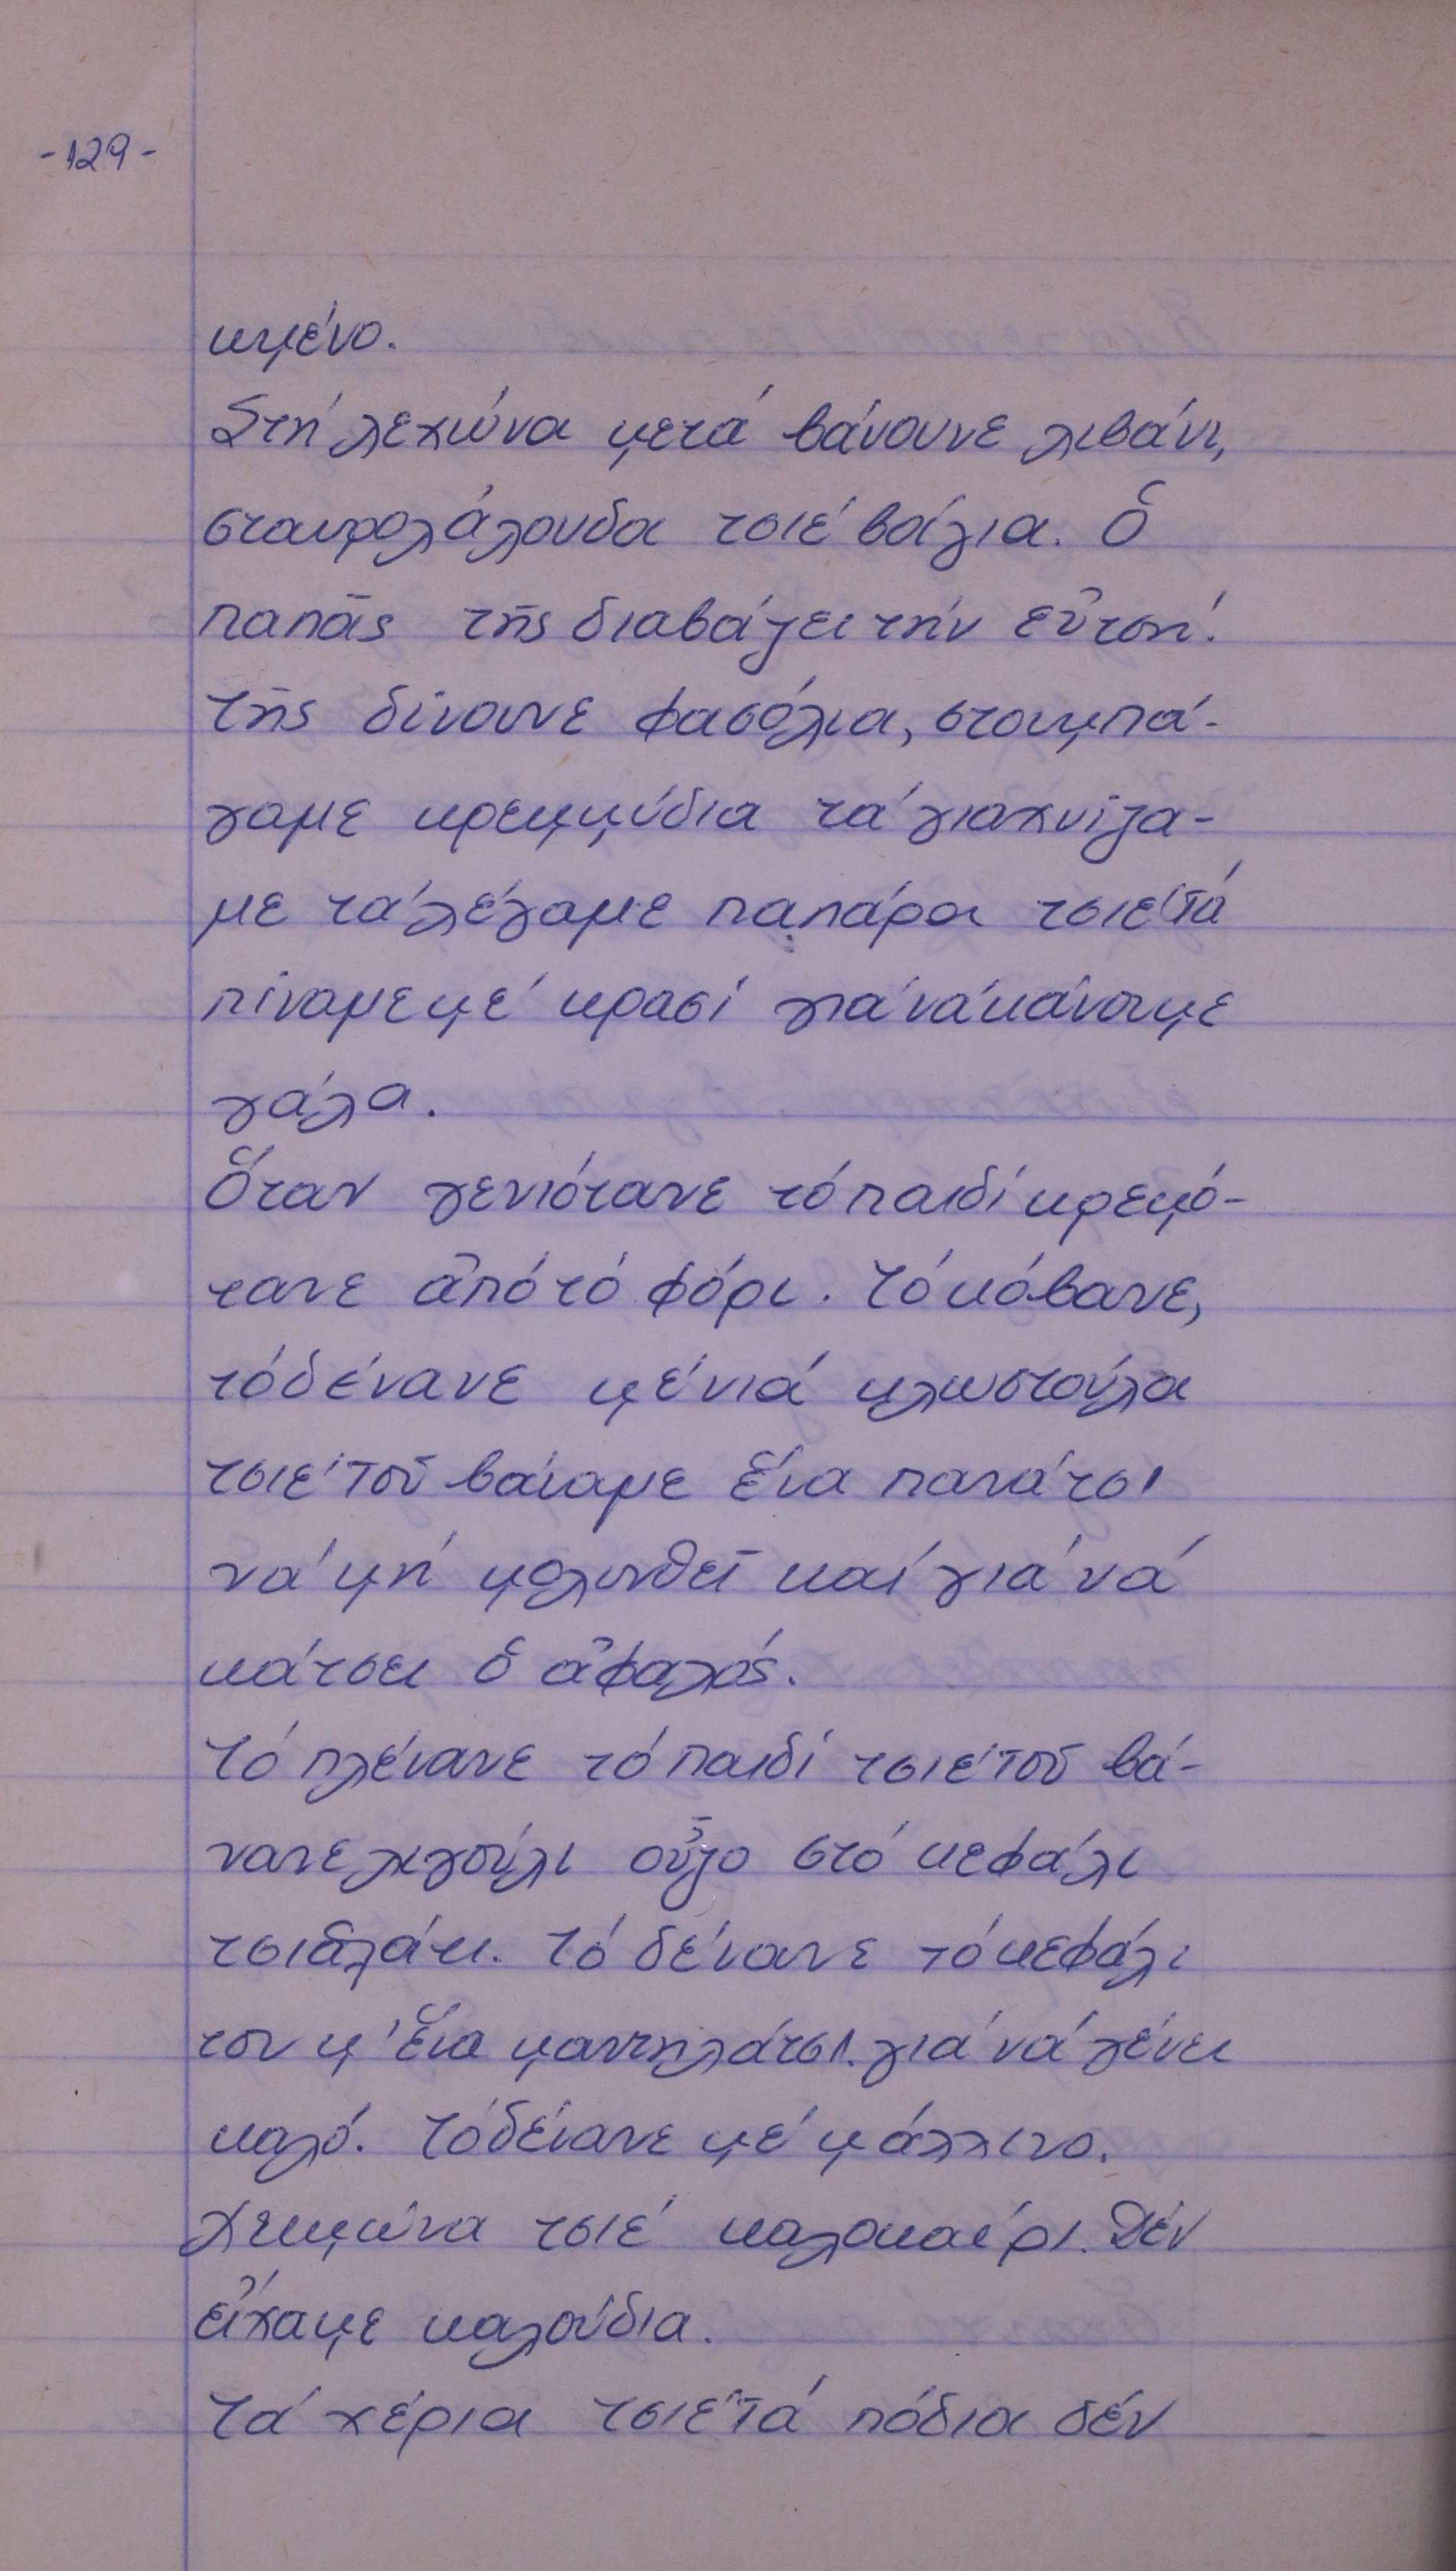 -129-
κμένο.
Στή λεχώνα μετά βάνουνε λιβάνι,
σταυρολάλουδα τσιέ βάγια. Ὁ
παπᾶς τῆς διαβάζει τήν εὐτσή.
τῆς δίνουνε φασόλια, στουμπά-
γαμε κρεμμύδια τά γιαχνίζα-
με τά λέγαμε παπάρα τσιέ τά
πίναμε μέ κρασί γιά νά κάνουμε
γάλα.
Ὅταν γενιότανε τό παιδί κρεμό-
τανε ἀπό τό φόρι. τό κόβανε,
τό δένανε μέ νιά κλωστούλα
τσιέ τοῦ βάναμε ἕνα πανάτσι
νά μή μολυνθεῖ καί γιά νά
κάτσει ὁ ἀφαλός.
τό πλένανε τό παιδί τσιέ τοῦ βά-
νανε λιγούλι οὖζο στό κεφάλι
τσι ἁλάτι. τό δένανε τό κεφάλι
του μ' ἕνα μαντηλάτσι. γιά νά γένει
καλό. τό δένανε μέ μάλλινο.
Χειμώνα τσιέ καλοκαίρι. Δέν
εἴχαμε καλούδια.
τά χέρια τσιέ τά πόδια δέν